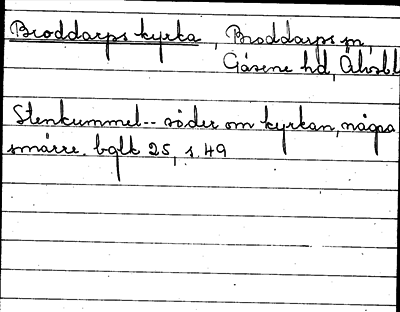 Broddarps kyrka, Broddarps sn,
Gäsene hd, Älvsbl
Stenkummel -- söder om kyrkan, några
smärre. bglk 25, s. 49